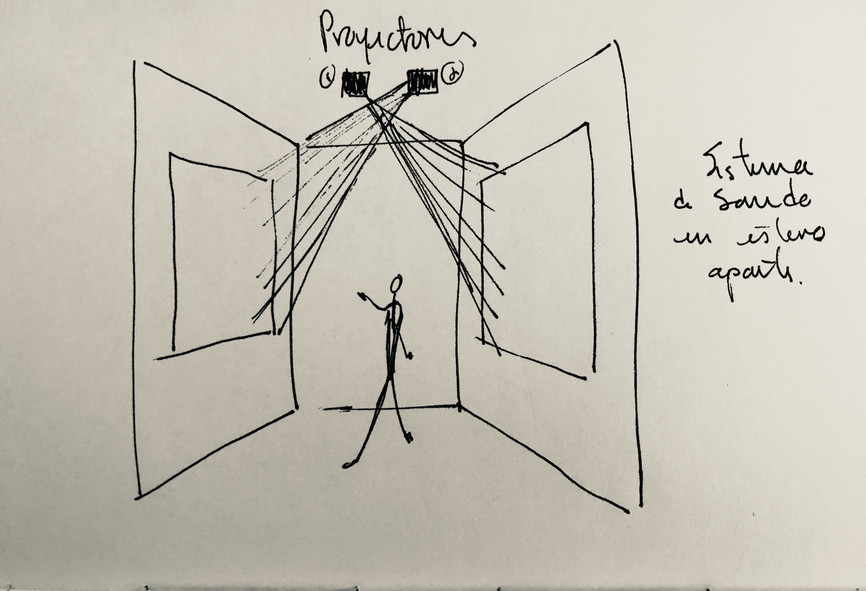 Proyectores
① ②
Sistema
de sonido
en estereo
aparte.